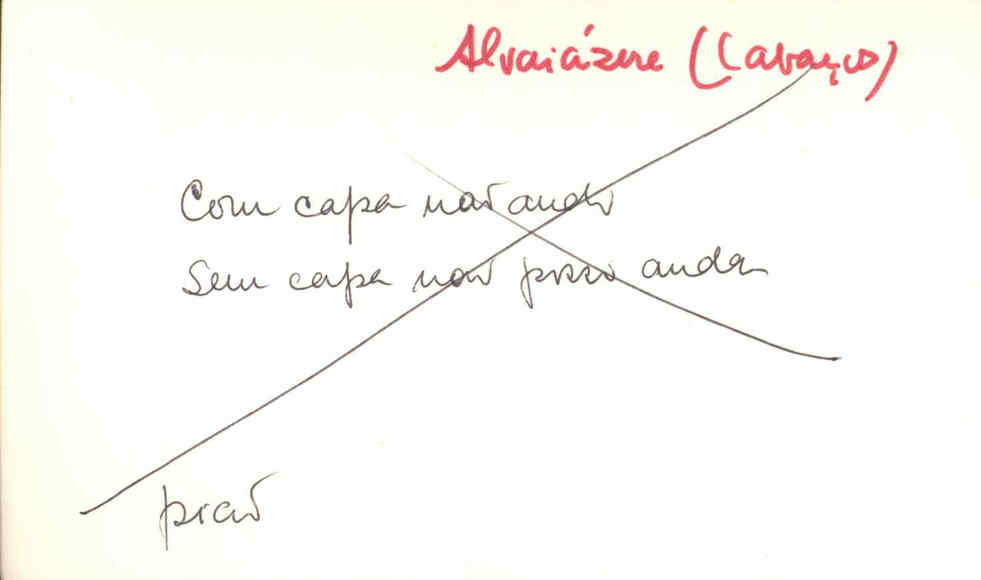 Alvaiázere (Cabaços)
Com capa não ando
Sem capa não posso andar
pião